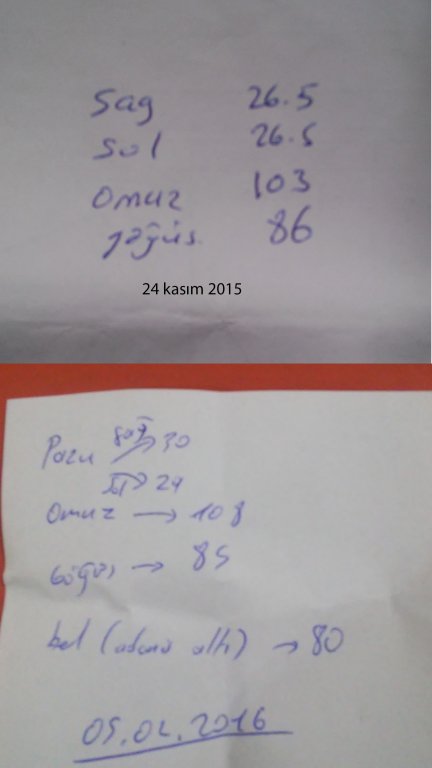 Sag 26.5
Sol 26.5
Omuz 103
göğüs. 86
24 kasım 2015
Pazu sağ → 30
sol → 29
Omuz → 108
Göğüs → 85
bel (adana altı) → 80
05.02.2016